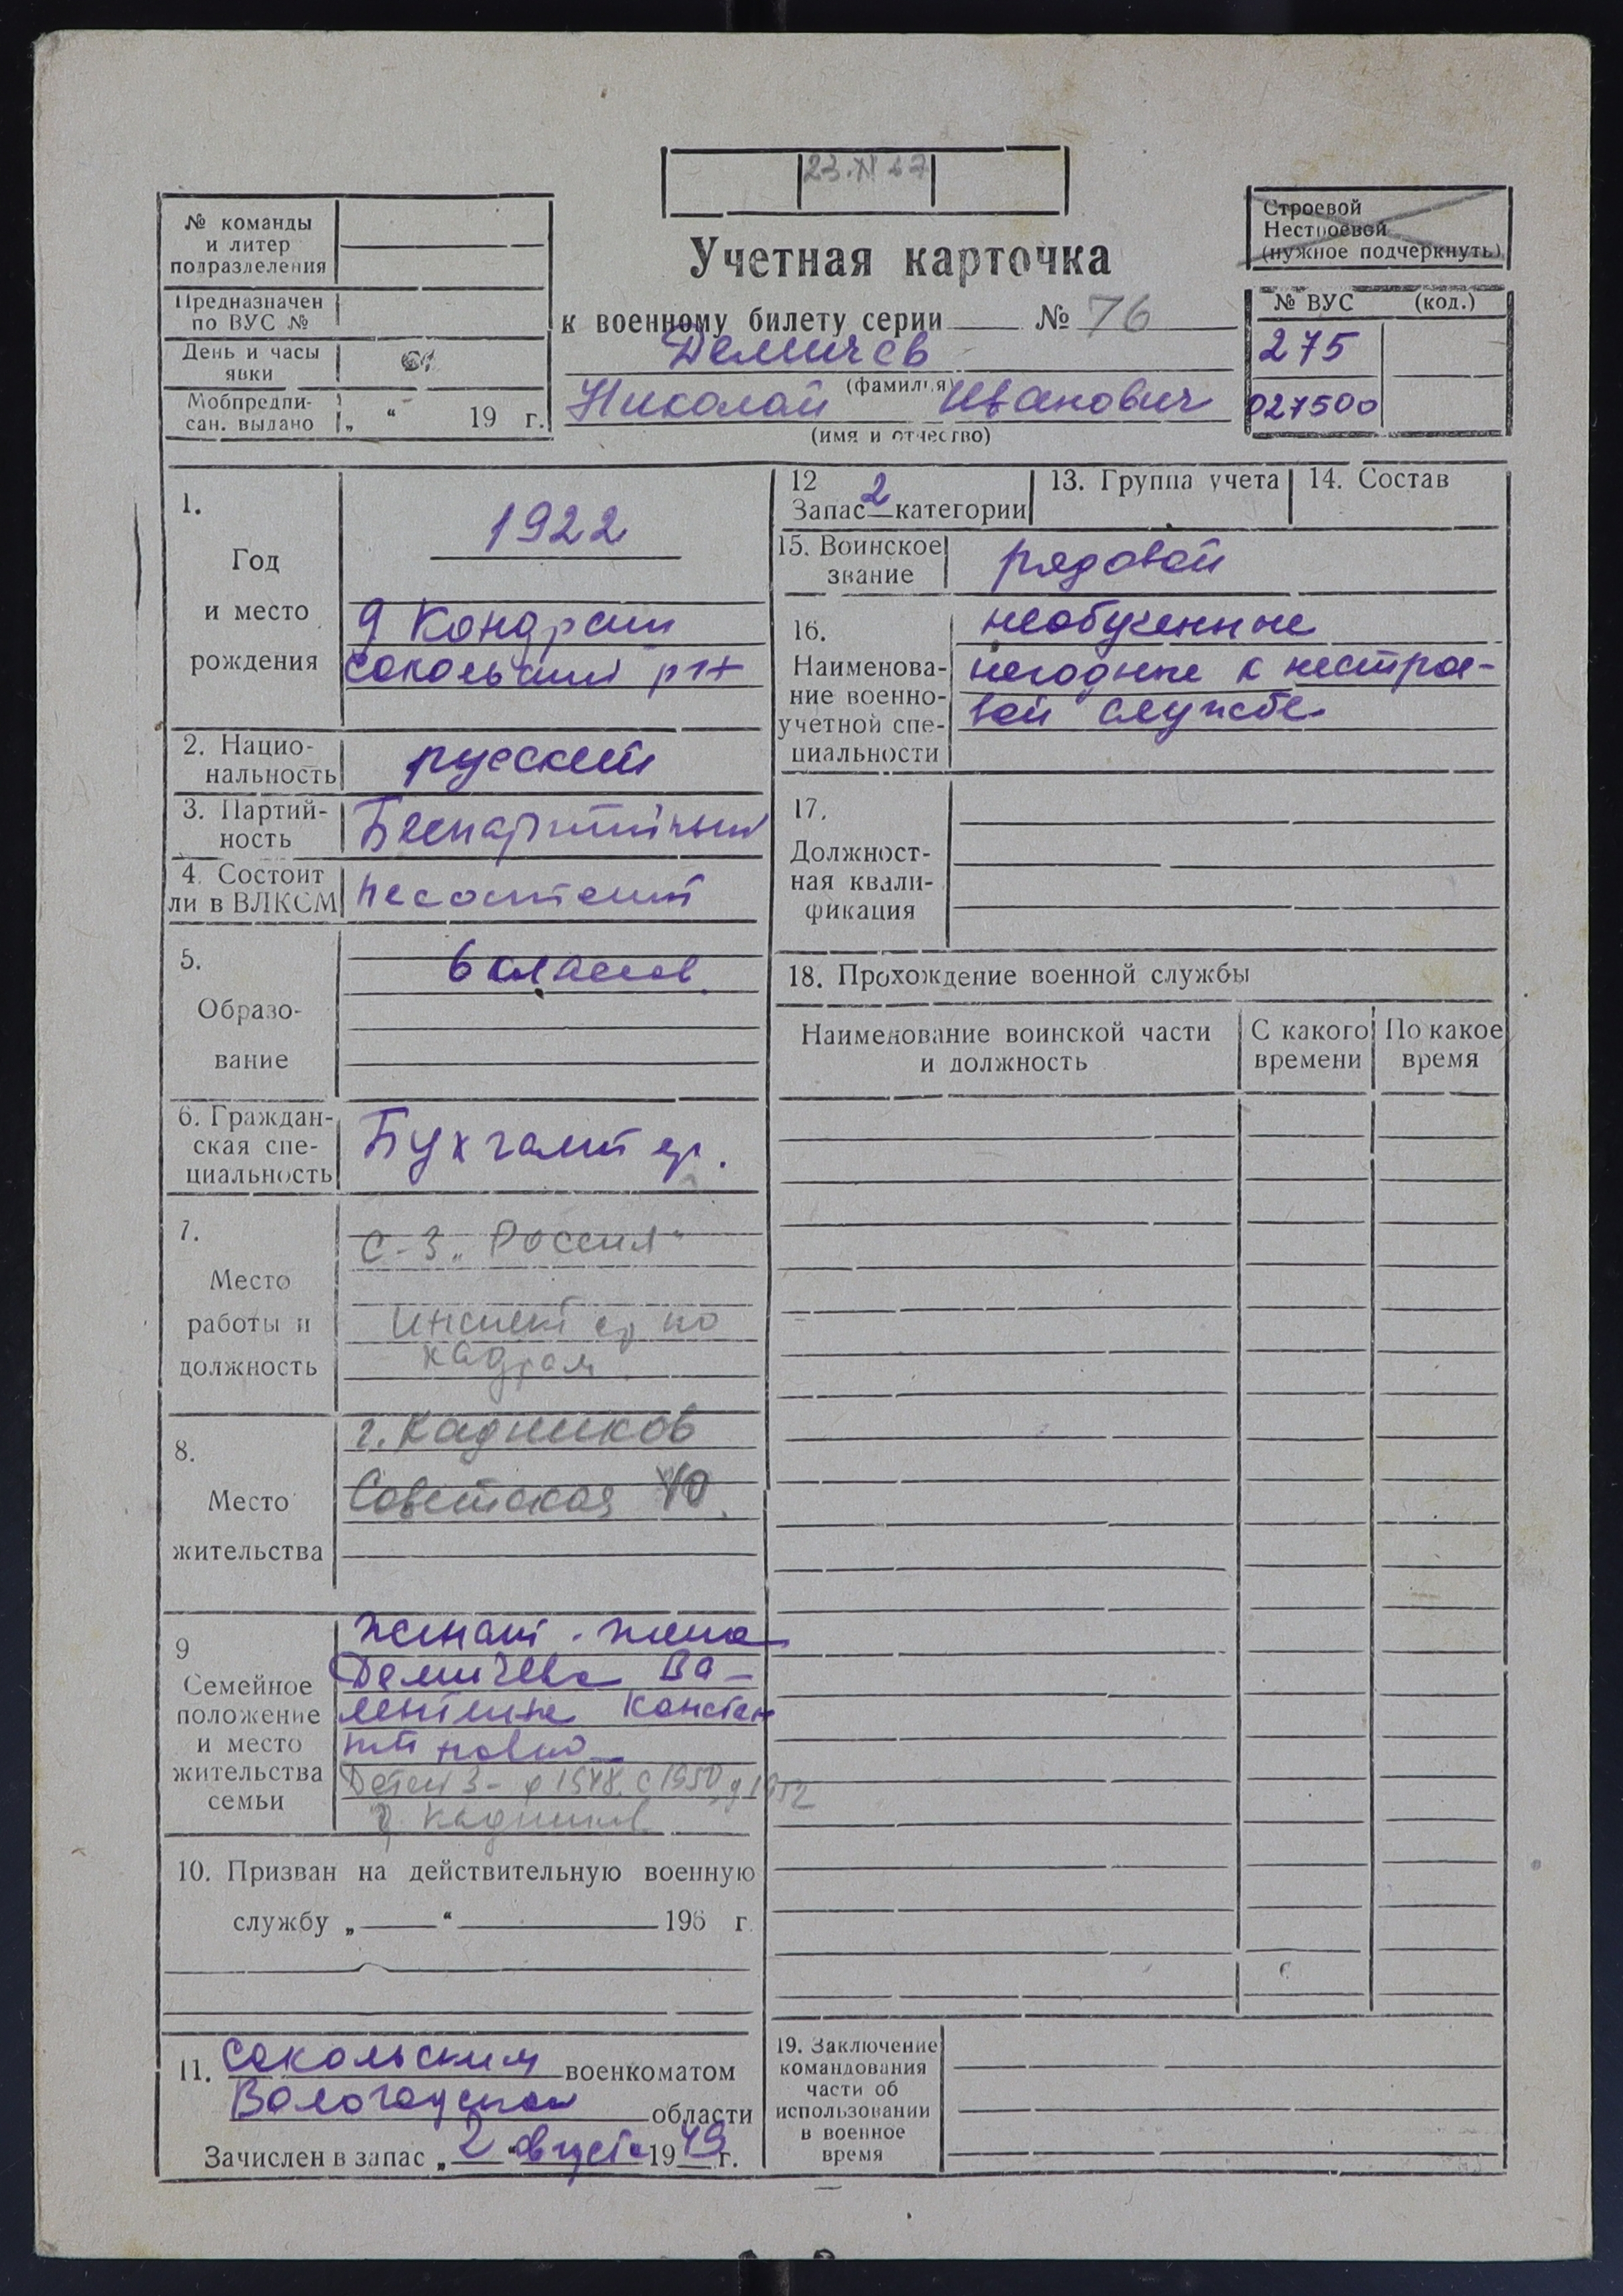 № команды
и литер
подразделения
Предназначен
по ВУС №
День и часы
явки
Мобпредпи-
сан. выдано „ “ 19 г.
Учетная карточка
к военному билету серии № 76
Демичев
(фамилия)
Николай Иванович
(имя и отчество)
Строевой
Нестроевой
(нужное подчеркнуть)
№ ВУС (код.)
275
027500
1.
Год
и место
рождения
1922
Сокольский р-н
2. Нацио-
нальность
русский
3. Партий-
ность
Беспартийный
4. Состоит
ли в ВЛКСМ
не состоит
5.
Образо-
вание
6 классов
6. Граждан-
ская спе-
циальность
Бухгалтер.
7.
Место
работы и
должность
с-з „Россия“
Инспектор по
кадрам
8.
Место
жительства
г. Кадников
Советская
9
Семейное
положение
и место
жительства
семьи
женат. жена
Демичева Ва-
лентина Констан
тиновна
Детей 3- 1948, 1950, 1952
г. Кадников
10. Призван на действительную военную
службу „ “ 196 г.
11. Сокольским военкоматом
Вологодской области
Зачислен в запас „2“ августа 1949 г.
12
Запас 2 категории
13. Группа учета
14. Состав
15. Воинское
звание
рядовой
16.
Наименова-
ние военно-
учетной спе-
циальности
необученные
негодные к нестрое-
вой службе
17.
Должност-
ная квали-
фикация
18. Прохождение военной службы
Наименование воинской части
и должность
С какого
времени
По какое
время
19. Заключение
командования
части об
использовании
в военное
время